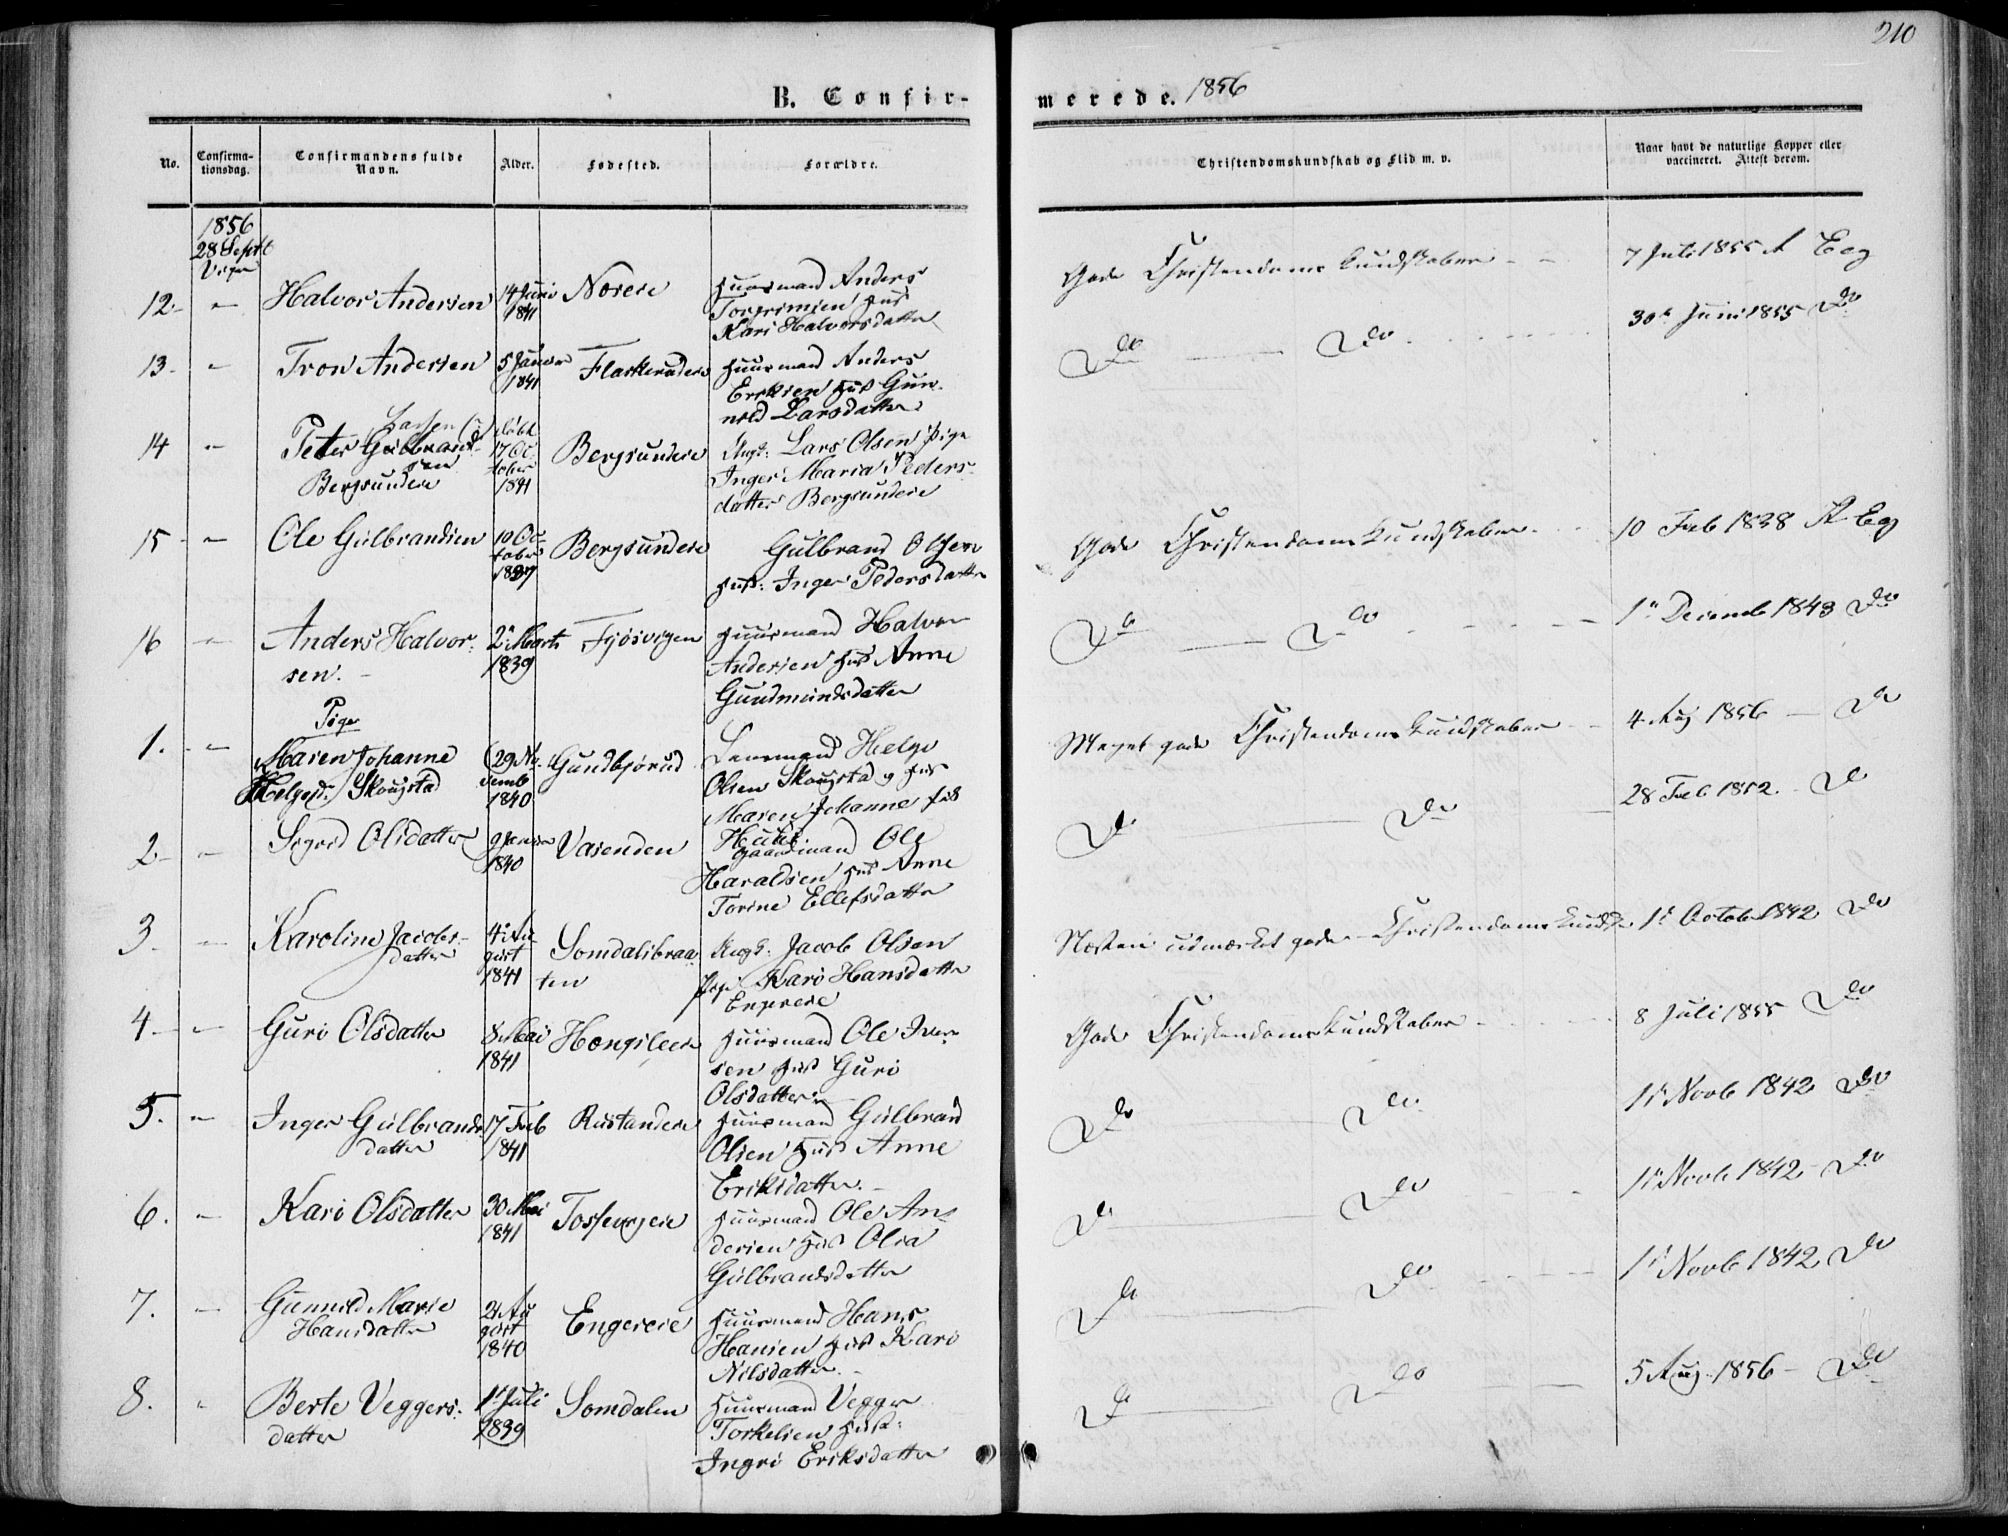 210
B. Confir-
merede. 1856
No.
Confirma-
tionsdag.
Confirmandens fulde
Navn.
Alder.
Fødested.
Forældre.
Christendomskundskab og Flid m. v.
Naar havt de naturlige Kopper eller
vaccineret. Attest derom.
1856
28 Septb
12. " Halvor Andersen 14 Juni 1841 Huusmand Anders
Torgrimsen Hus
Kari Halvorsdatter
Gode Christendoms Kundskaber - - 7 Juli 1855 A Eeg
13. " Tron Andersen 5 Januar 1841 Flaskerudeie Huusmand Anders
Eriksen Hus Gun-
nild Larsdatter
Do Do 30te Juni 1855 Do
14 " Peter Gulbrand-
sen
Bergsundeie
17 Oc-
tober
1841
Bergsundeie
Ungk: Lars Olsen Pige
Inger Maria Peders-
datter Bergsundeie
15 " Ole Gulbrandsen 10 Oc-
tober
1837
Bergsundeie
Gulbrand Olsen
Hust: Inger Pedersdatter
Gode Christendoms Kundskaber. 10 Feb 1838 A Eeg
16 " Anders Halvor-
sen.
2 Marts
1839
Huusmand Halvor
Andersen Hus Anne
Gundmundsdatter
Do Do 1ste Decemb 1843 Do
Piger
1. " Maren Johanne
Helgesd. Skougstad
29 No-
vemb
1840
Gundbjørud
Lensmand Helge
Olsen Skougstad og Hus
Maren Johanne
Meget gode Christendoms Kundskaber 4 Aug 1856 Do
2 " Sigrid Olsdatter 9 Januar
1840
Vasenden
Gaardmand Ole
Haraldsen Hus Anne
Torine Ellefsdatter
Do Do 28 Feb 1852. Do
3. " Karoline Jacobs-
datter
4 Au-
gust
1841
Somdalsbraa-
ten
Ungk: Jacob Olsen
Pige Kari Hansdatter
Næsten udmærket gode Christendoms Kundsk 1ste Octob 1842 Do
4 " Guri Olsdatter 8 Mai
1841
Huusmand Ole Iver-
sen Hus Guri
Olsdatter
Gode Christendoms Kundskaber 8 Juli 1855 Do
5. " Inger Gulbrands-
datter
17 Feb
1841
Rustandeie
Huusmand Gulbrand
Olsen Hus Anne
Eriksdatter.
Do Do 1ste Novb 1842 Do
6. " Kari Olsdatter 30 Mai
1841
Huusmand Ole An-
dersen Hus Olea
Gulbrandsdatter
Do Do 1ste Novb 1842 Do
7. " Gunnild Marie
Hansdatter
21 Au-
gust
1840
Engereie
Huusmand Hans
Hansen Hus Kari
Nilsdatter.
Do Do 1ste Novb 1842 Do
8. " Berte Veggers-
datter
1 Juli
1839
Somdalen
Huusmand Vegger
Torkelsen Hust:
Ingri Eriksdatter
Do Do 5 Aug. 1856 - Do